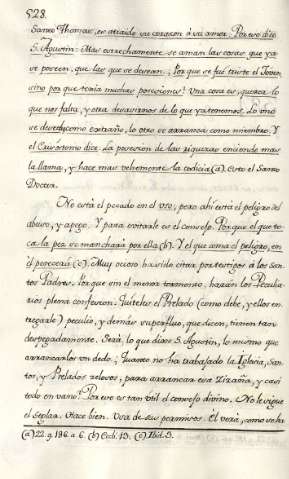 528.
Santo Thomas, es atraido su corazon á su amor. Por eso dice
S. Agustin: Mas estrechamente se aman las cosas que ya
se poseen, que las que se desean; Porque se fué triste el Joven
sino por que tenia muchas posesiones? Una cosa es querer lo
que nos falta, y otra desasirnos de lo que ya tenemos. Lo uno
se desecha como extraño, lo otro se arranca como miembro. Y
el Crisostomo dice La posesion de las riquezas enciende mas
la llama, y hace mas vehemente la codicia (a). Esto el Santo
Doctor.
No está el pecado en el uso, pero ahi está el peligro del
abuso, y apego. Y para evitarle es el consejo. Porque el que to-
ca la pez se manchará por ella (b). Y el que ama el peligro, en
él perecerá (c). Muy ocioso ha sido citar por testigos á los San-
tos Padres. Porque en el menor tormento, harán los Peculia-
rios plena confesion. Quiteles el Prelado (como debe, y ellos en-
tregarle) peculio, y demás superfluo, que dicen, tienen tan
despegadamente. Será, lo que dice S. Agustin, lo mismo que
arrancarles un dedo. Quanto no ha trabajado la Iglesia, San-
tos, y Prelados zelosos, para arrancar esa Zizaña, y casi
todo en vano? Por eso es tan util el consejo divino. No le sigue
el Seglar. Hace bien. Usa de sus permisos. El verá, como se ha
(a) 22. q. 186. a. 6. (b) Ecli. 13. (c) Ibid. 3.